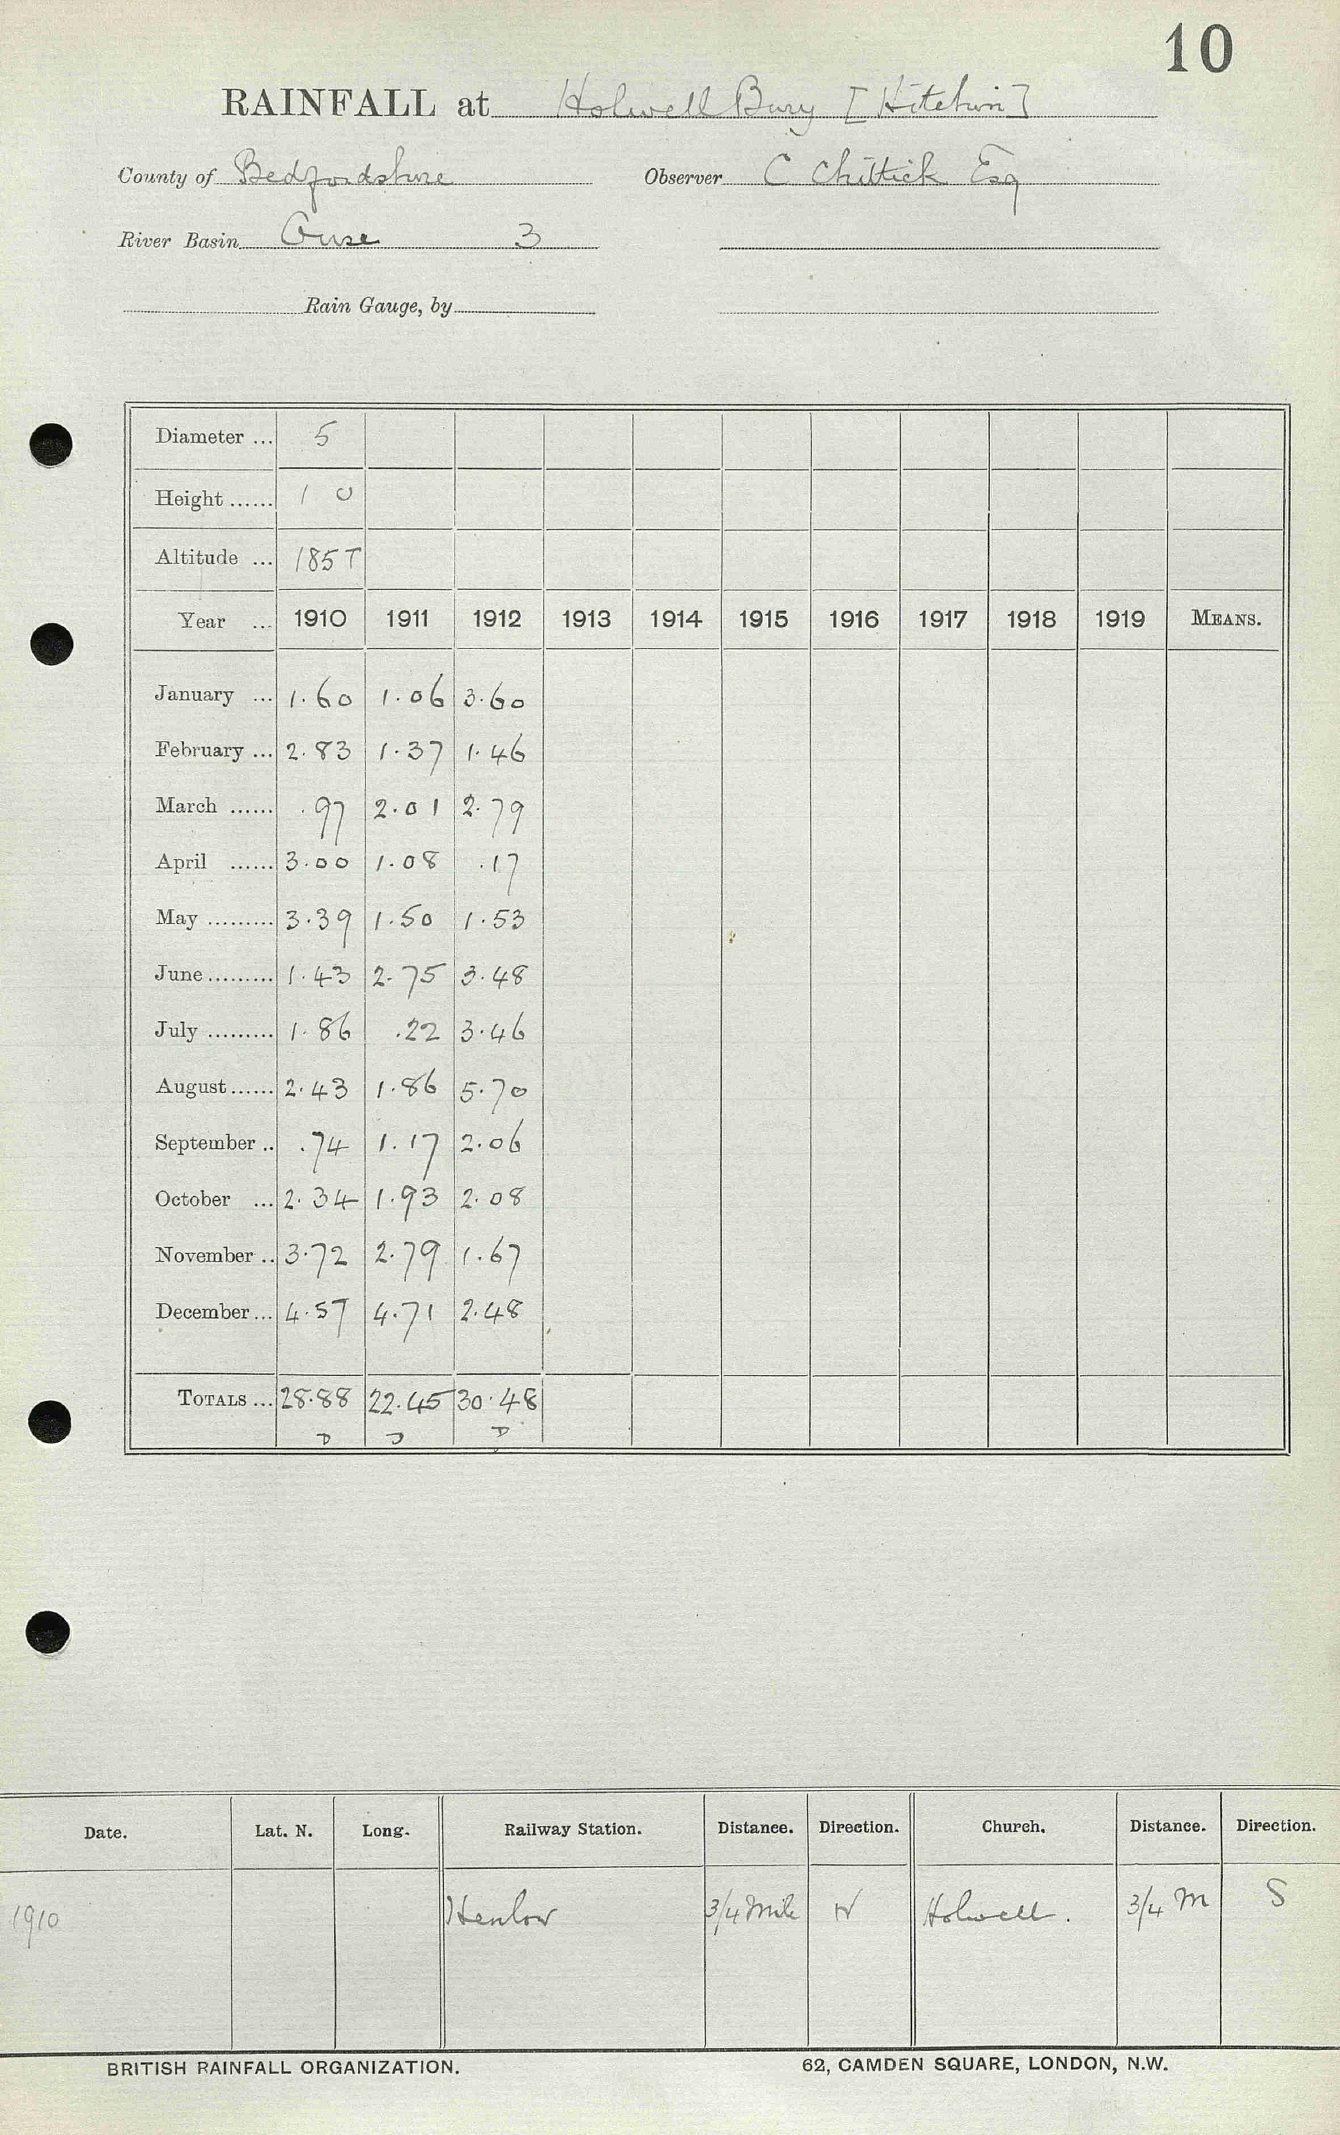 10
RAINFALL at Holwell Bury [Hitchin]
County of Bedfordshire Observer C Chittick Esq
River Basin Ouse 3
Rain Gauge, by
Diameter ... 5
Height ...... 1 0
Altitude ... 185 T
Year ... 1910 1911 1912 1913 1914 1915 1916 1917 1918 1919 MEANS.
January ... 1.60 1.06 3.60
February ... 2.83 1.37 1.46
March ...... .97 2.01 2.79
April ...... 3.00 1.08 .17
May ......... 3.39 1.50 1.53
June ......... 1.43 2.75 3.48
July ......... 1.86 .22 3.46
August ...... 2.43 1.86 5.70
September .. .74 1.17 2.06
October ... 2.34 1.93 2.08
November .. 3.72 2.79 1.67
December ... 4.57 4.71 2.48
TOTALS ... 28.88 22.45 30.48
D D D
Date. Lat. N. Long. Railway Station. Distance. Direction. Church. Distance. Direction.
1910 Henlow 3/4 Mile Holwell. 3/4 M S
BRITISH RAINFALL ORGANIZATION. 62, CAMDEN SQUARE, LONDON, N.W.